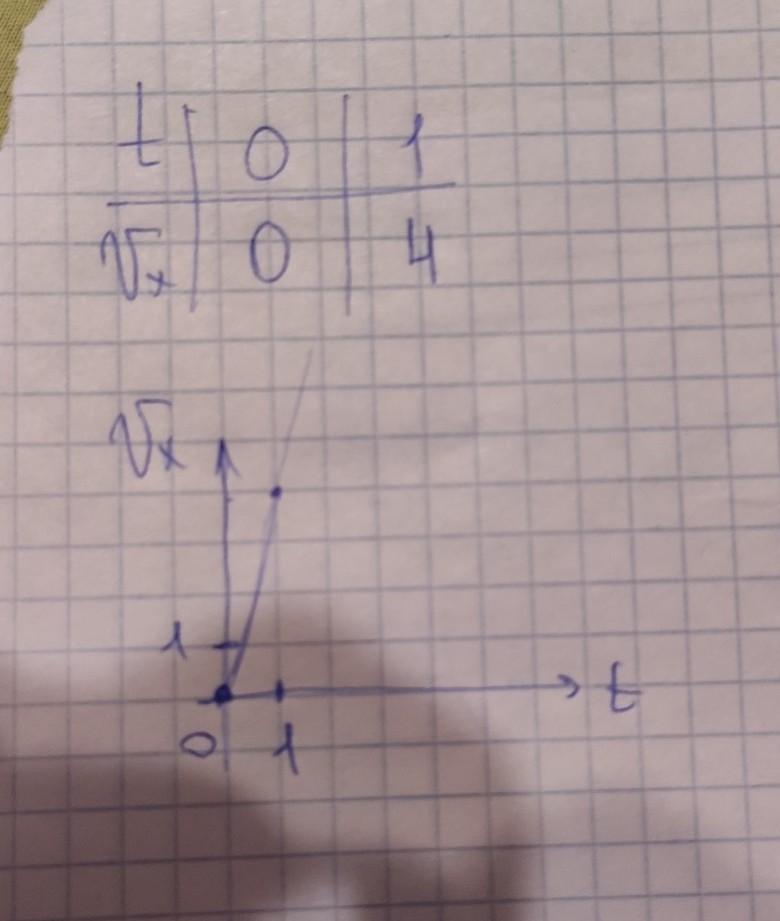 t 0 1
Vx 0 4
Vx
1
t
0 1